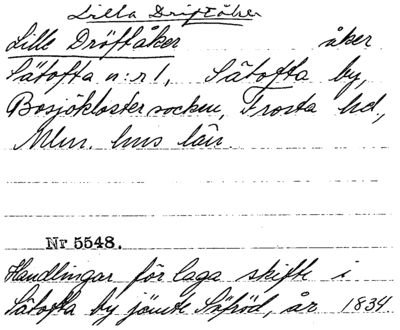 Lilla Driftåker
Lille Dröftåker åker
Sätofta n:r 1, Sätofta by,
Bosjökloster socken, Frosta hd.,
Mlm. hus län.
Nr 5548.
Handlingar för laga skifte i
Sätofta by jämte Sjöröd, år 1834.